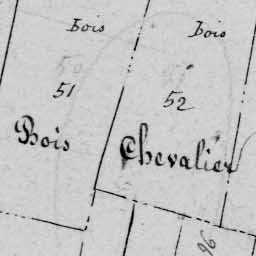 Bois
Bois
51
52
Bois
Chevalier
96